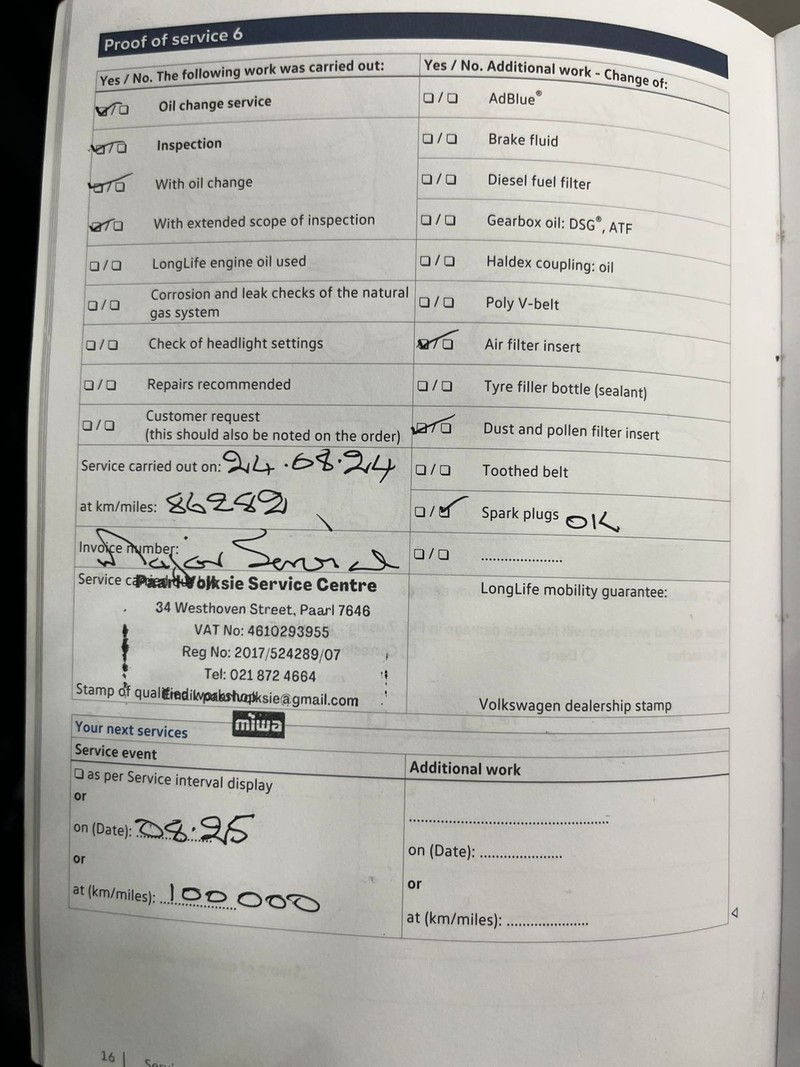 Proof of service 6
Yes / No. The following work was carried out:
☑/☐ Oil change service
☑/☐ Inspection
☑/☐ With oil change
☑/☐ With extended scope of inspection
☐/☐ LongLife engine oil used
☐/☐ Corrosion and leak checks of the natural
gas system
☐/☐ Check of headlight settings
☐/☐ Repairs recommended
☐/☐ Customer request
(this should also be noted on the order)
Service carried out on: 24.08.24
at km/miles: 86289
Invoice number: Major Service
Yes / No. Additional work - Change of:
☐/☐ AdBlue®
☐/☐ Brake fluid
☐/☐ Diesel fuel filter
☐/☐ Gearbox oil: DSG®, ATF
☐/☐ Haldex coupling: oil
☐/☐ Poly V-belt
☑/☐ Air filter insert
☐/☐ Tyre filler bottle (sealant)
☑/☐ Dust and pollen filter insert
☐/☐ Toothed belt
☐/☑ Spark plugs OK
☐/☐ ......................
Service carried out by:
Paarl Volksie Service Centre
34 Westhoven Street, Paarl 7646
VAT No: 4610293955
Reg No: 2017/524289/07
Tel: 021 872 4664
Stamp of qualified workshop
miwa
LongLife mobility guarantee:
Volkswagen dealership stamp
Your next services
Service event
☐ as per Service interval display
or
on (Date): 08.25
or
at (km/miles): 100 000
Additional work
.....................................................
on (Date): ......................
or
at (km/miles): ......................
16